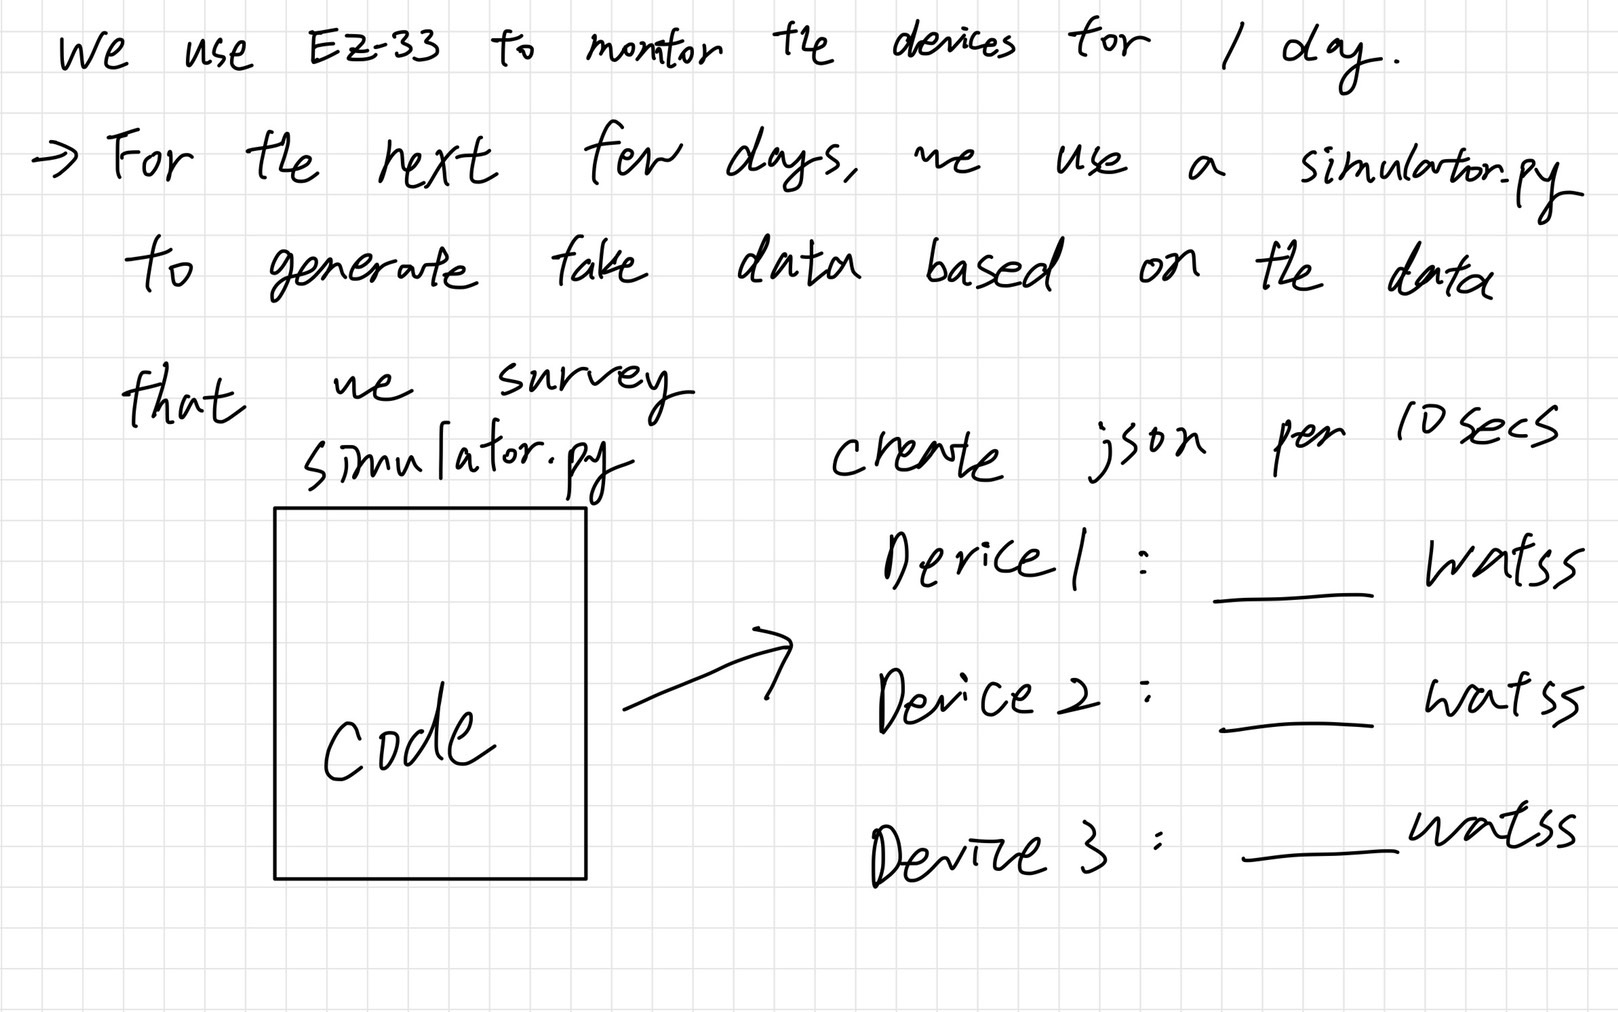 We use EZ-33 to monitor the devices for 1 day.
→ For the next few days, we use a simulator.py
to generate fake data based on the data
that we survey
simulator.py
create json per 10 secs
Device 1 : ____ watss
Device 2 : ____ watss
Device 3 : ____ watss
code